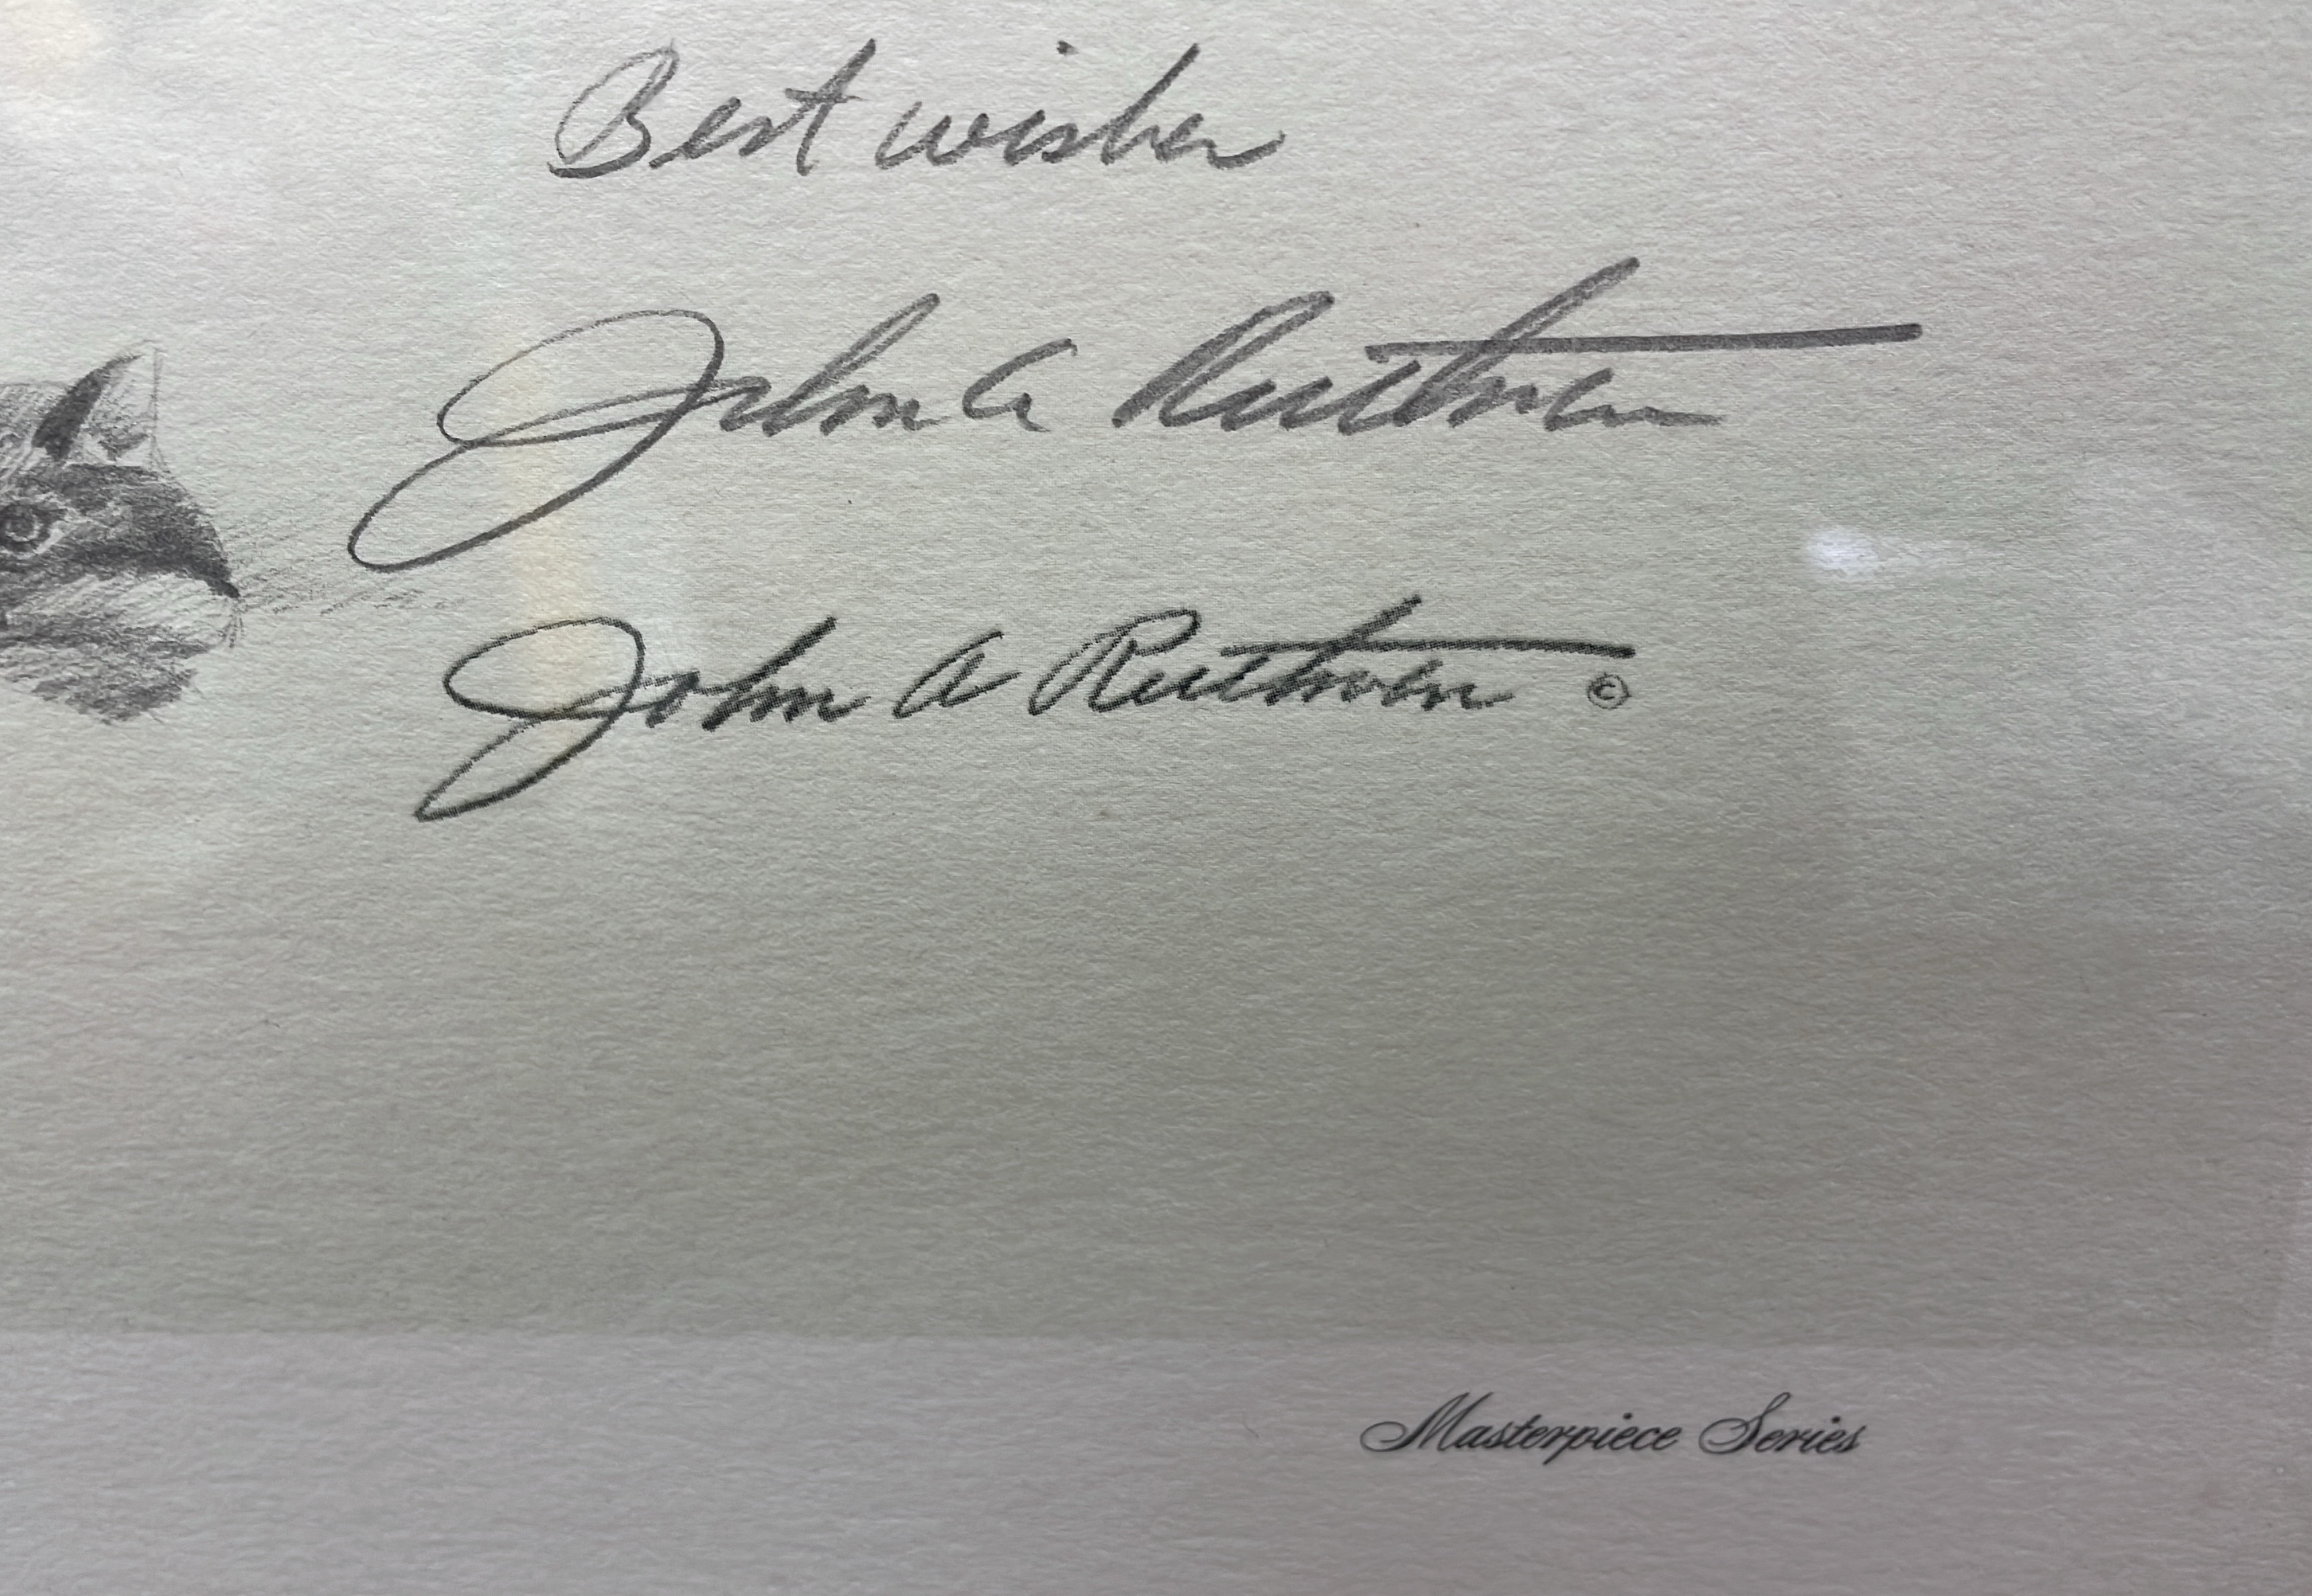 Best wishes
John A Ruthven
John A Ruthven ©
Masterpiece Series